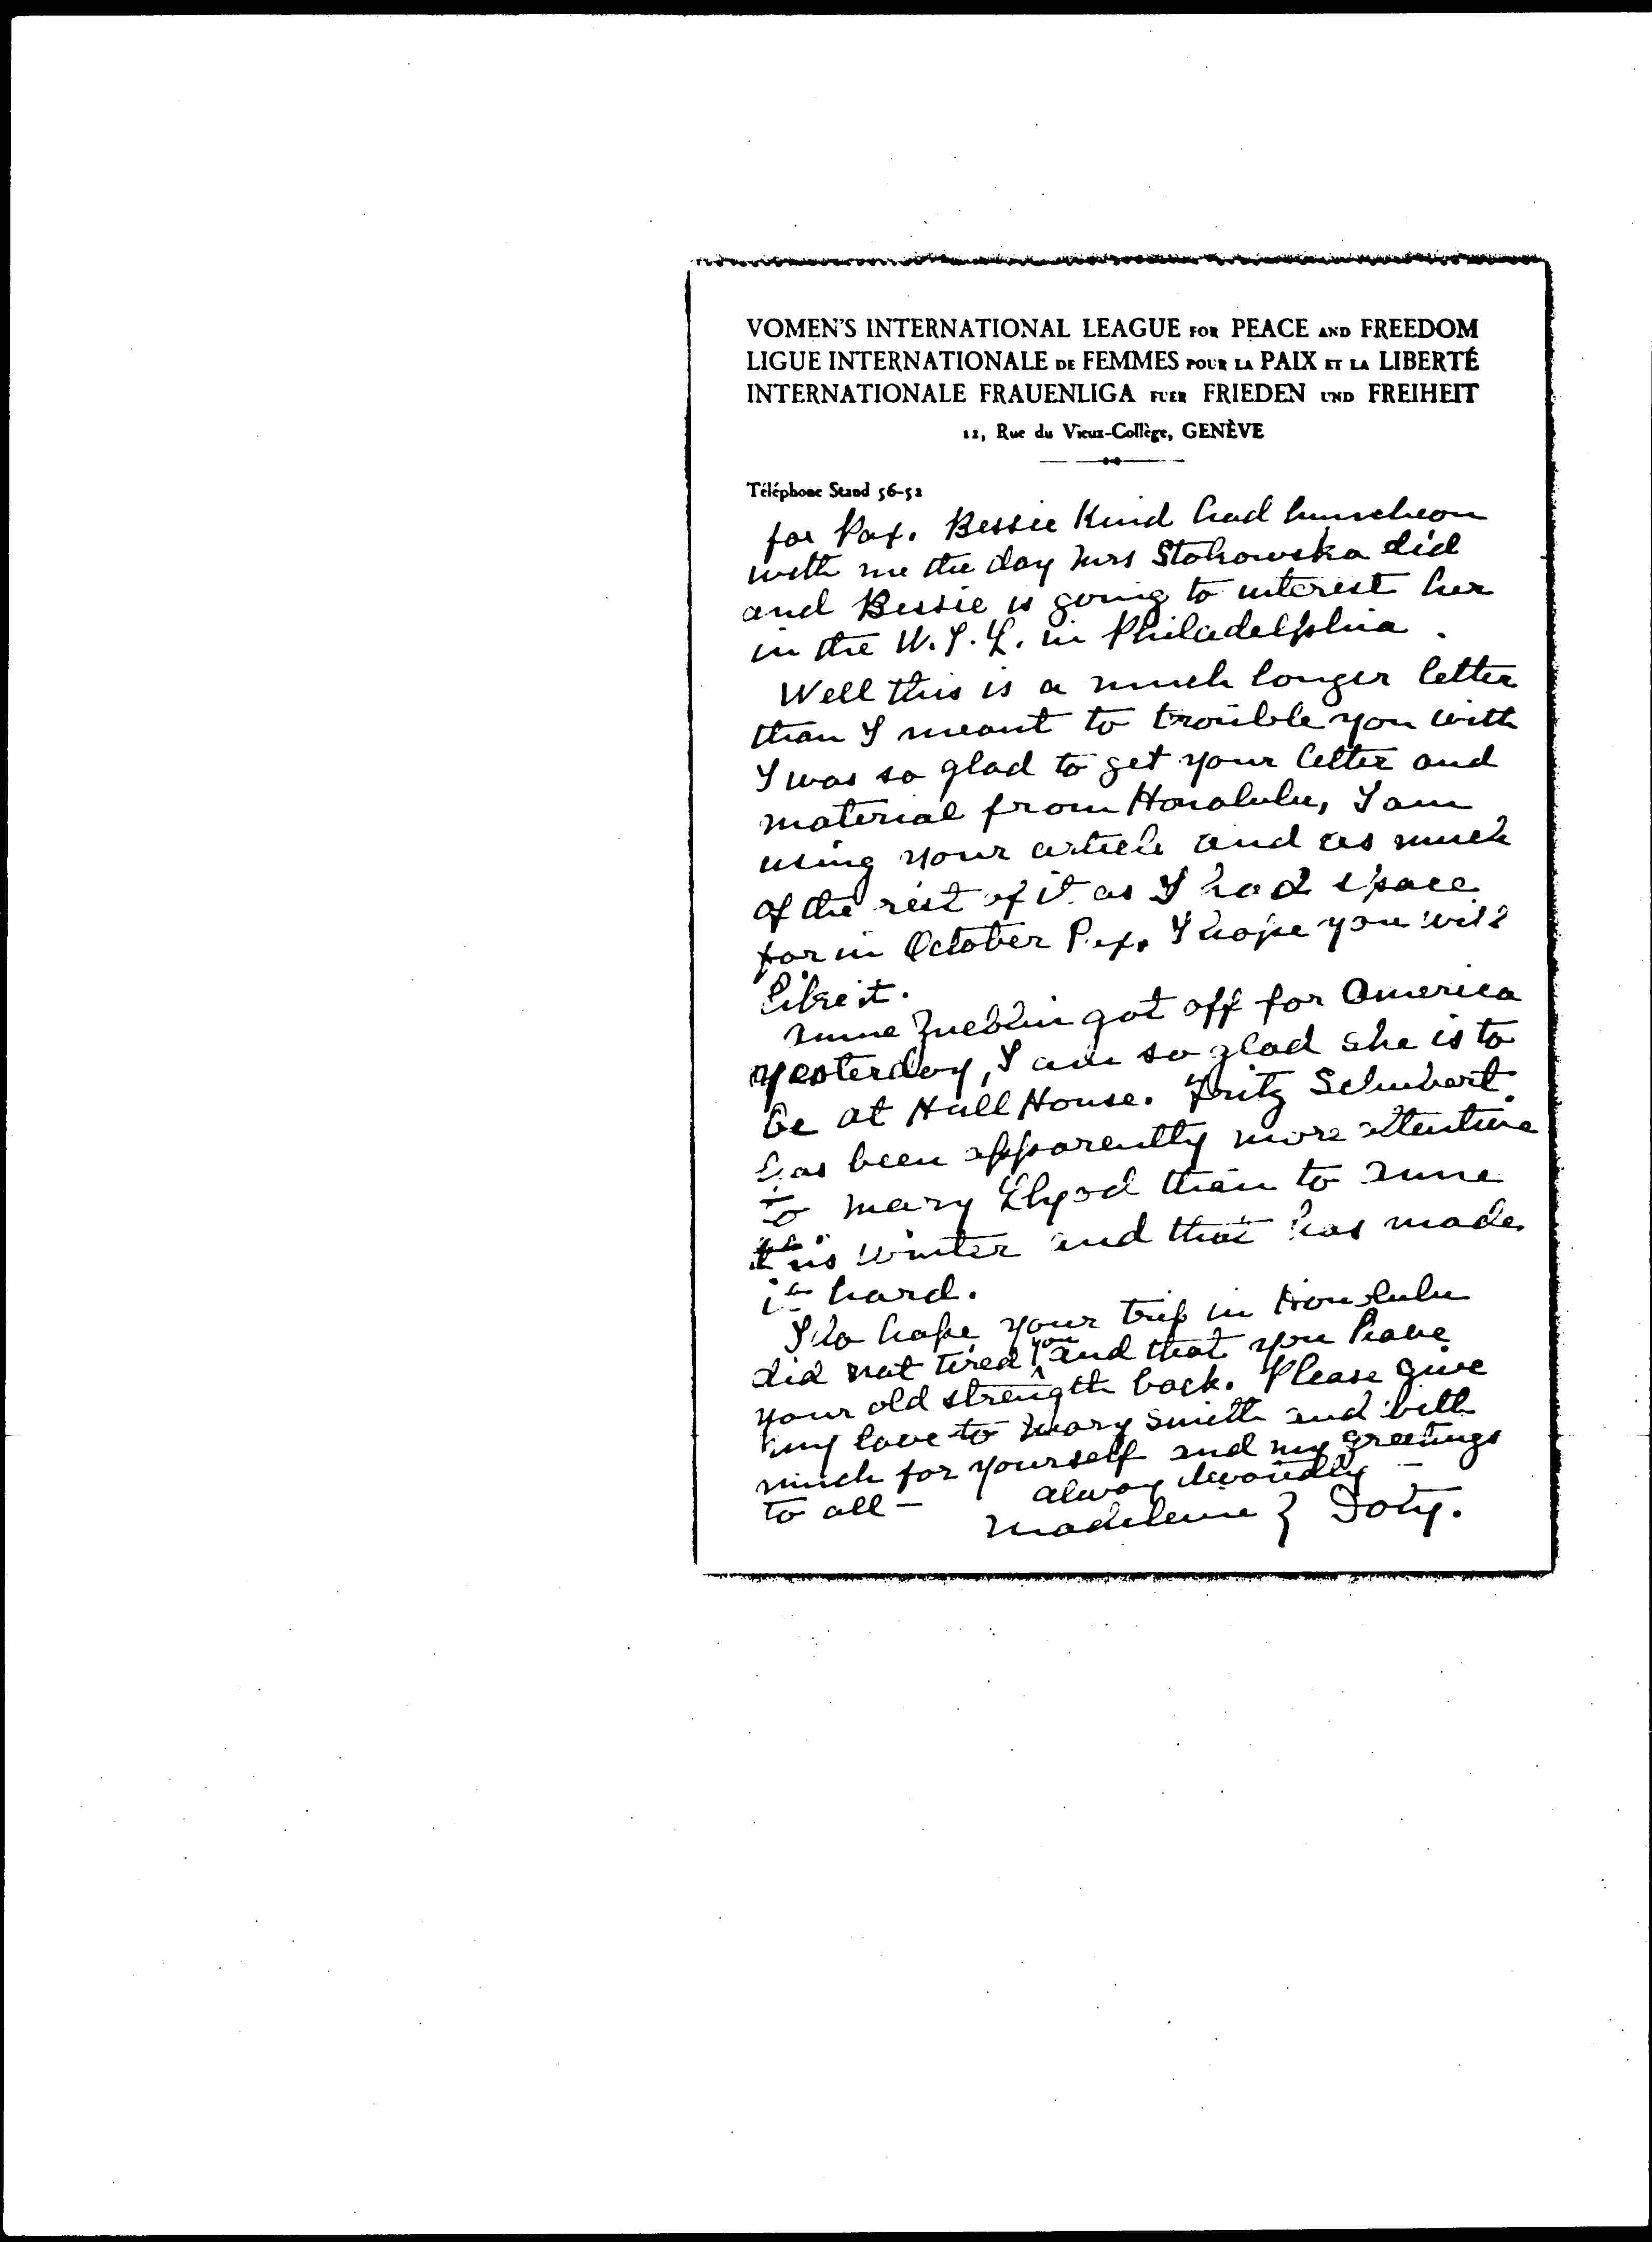 VOMEN'S INTERNATIONAL LEAGUE FOR PEACE AND FREEDOM
LIGUE INTERNATIONALE DE FEMMES POUR LA PAIX ET LA LIBERTÉ
INTERNATIONALE FRAUENLIGA FUER FRIEDEN UND FREIHEIT
12, Rue du Vieux-Collège, GENÈVE
Téléphone Stand 56-52
for Pax. Bessie Kind had luncheon
with me the day Mrs Stokowska did
and Bessie is going to interest her
in the W.I.L. in Philadelphia.
Well this is a much longer letter
than I meant to trouble you with
I was so glad to get your letter and
material from Honolulu, I am
using your article and as much
of the rest of it as I had space
for in October Pax. I hope you will
like it.
Anne Zueblin got off for America
yesterday, I am so glad she is to
be at Hull House. Fritz Schubert
has been apparently more attentive
to Mary Lloyd than to Anne
this winter and that has made
it hard.
I do hope your trip in Honolulu
did not tired you and that you have
your old strength back. Please give
my love to Mary Smith and with
much for yourself and my greetings
to all —
alway devotedly —
Madeleine Z Doty.